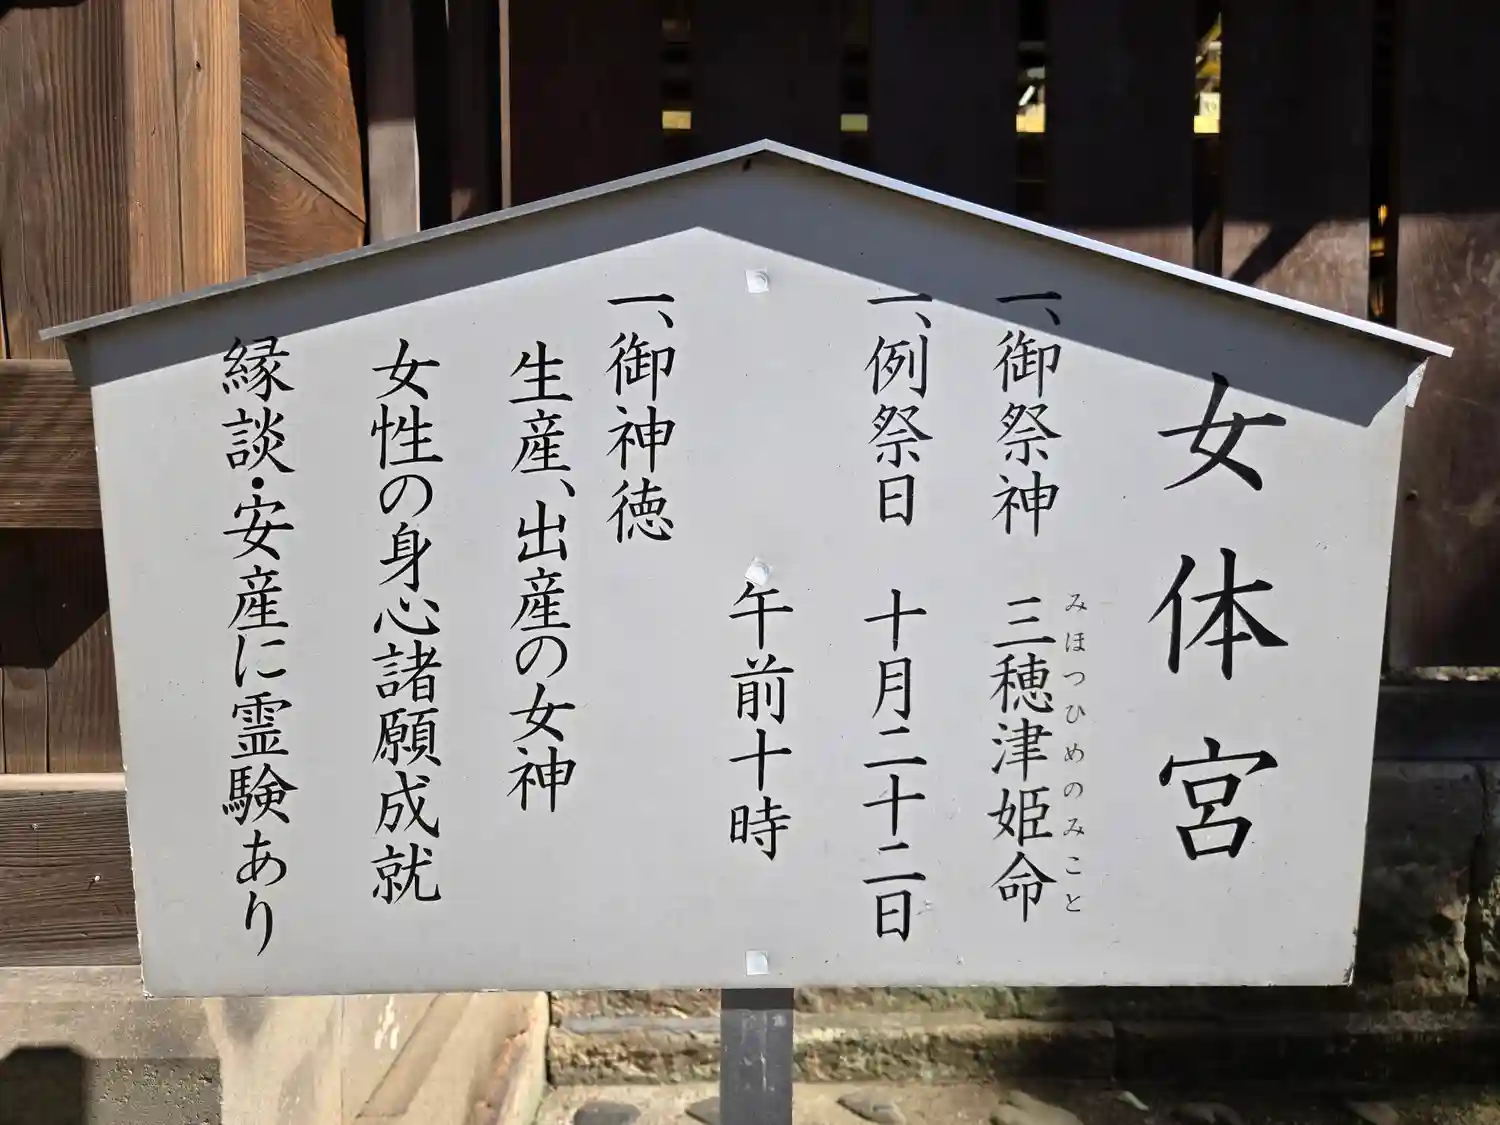 女体宮
一、御祭神 三穂津姫命
みほつひめのみこと
一、例祭日 十月二十二日
午前十時
一、御神徳
生産、出産の女神
女性の身心諸願成就
縁談・安産に霊験あり